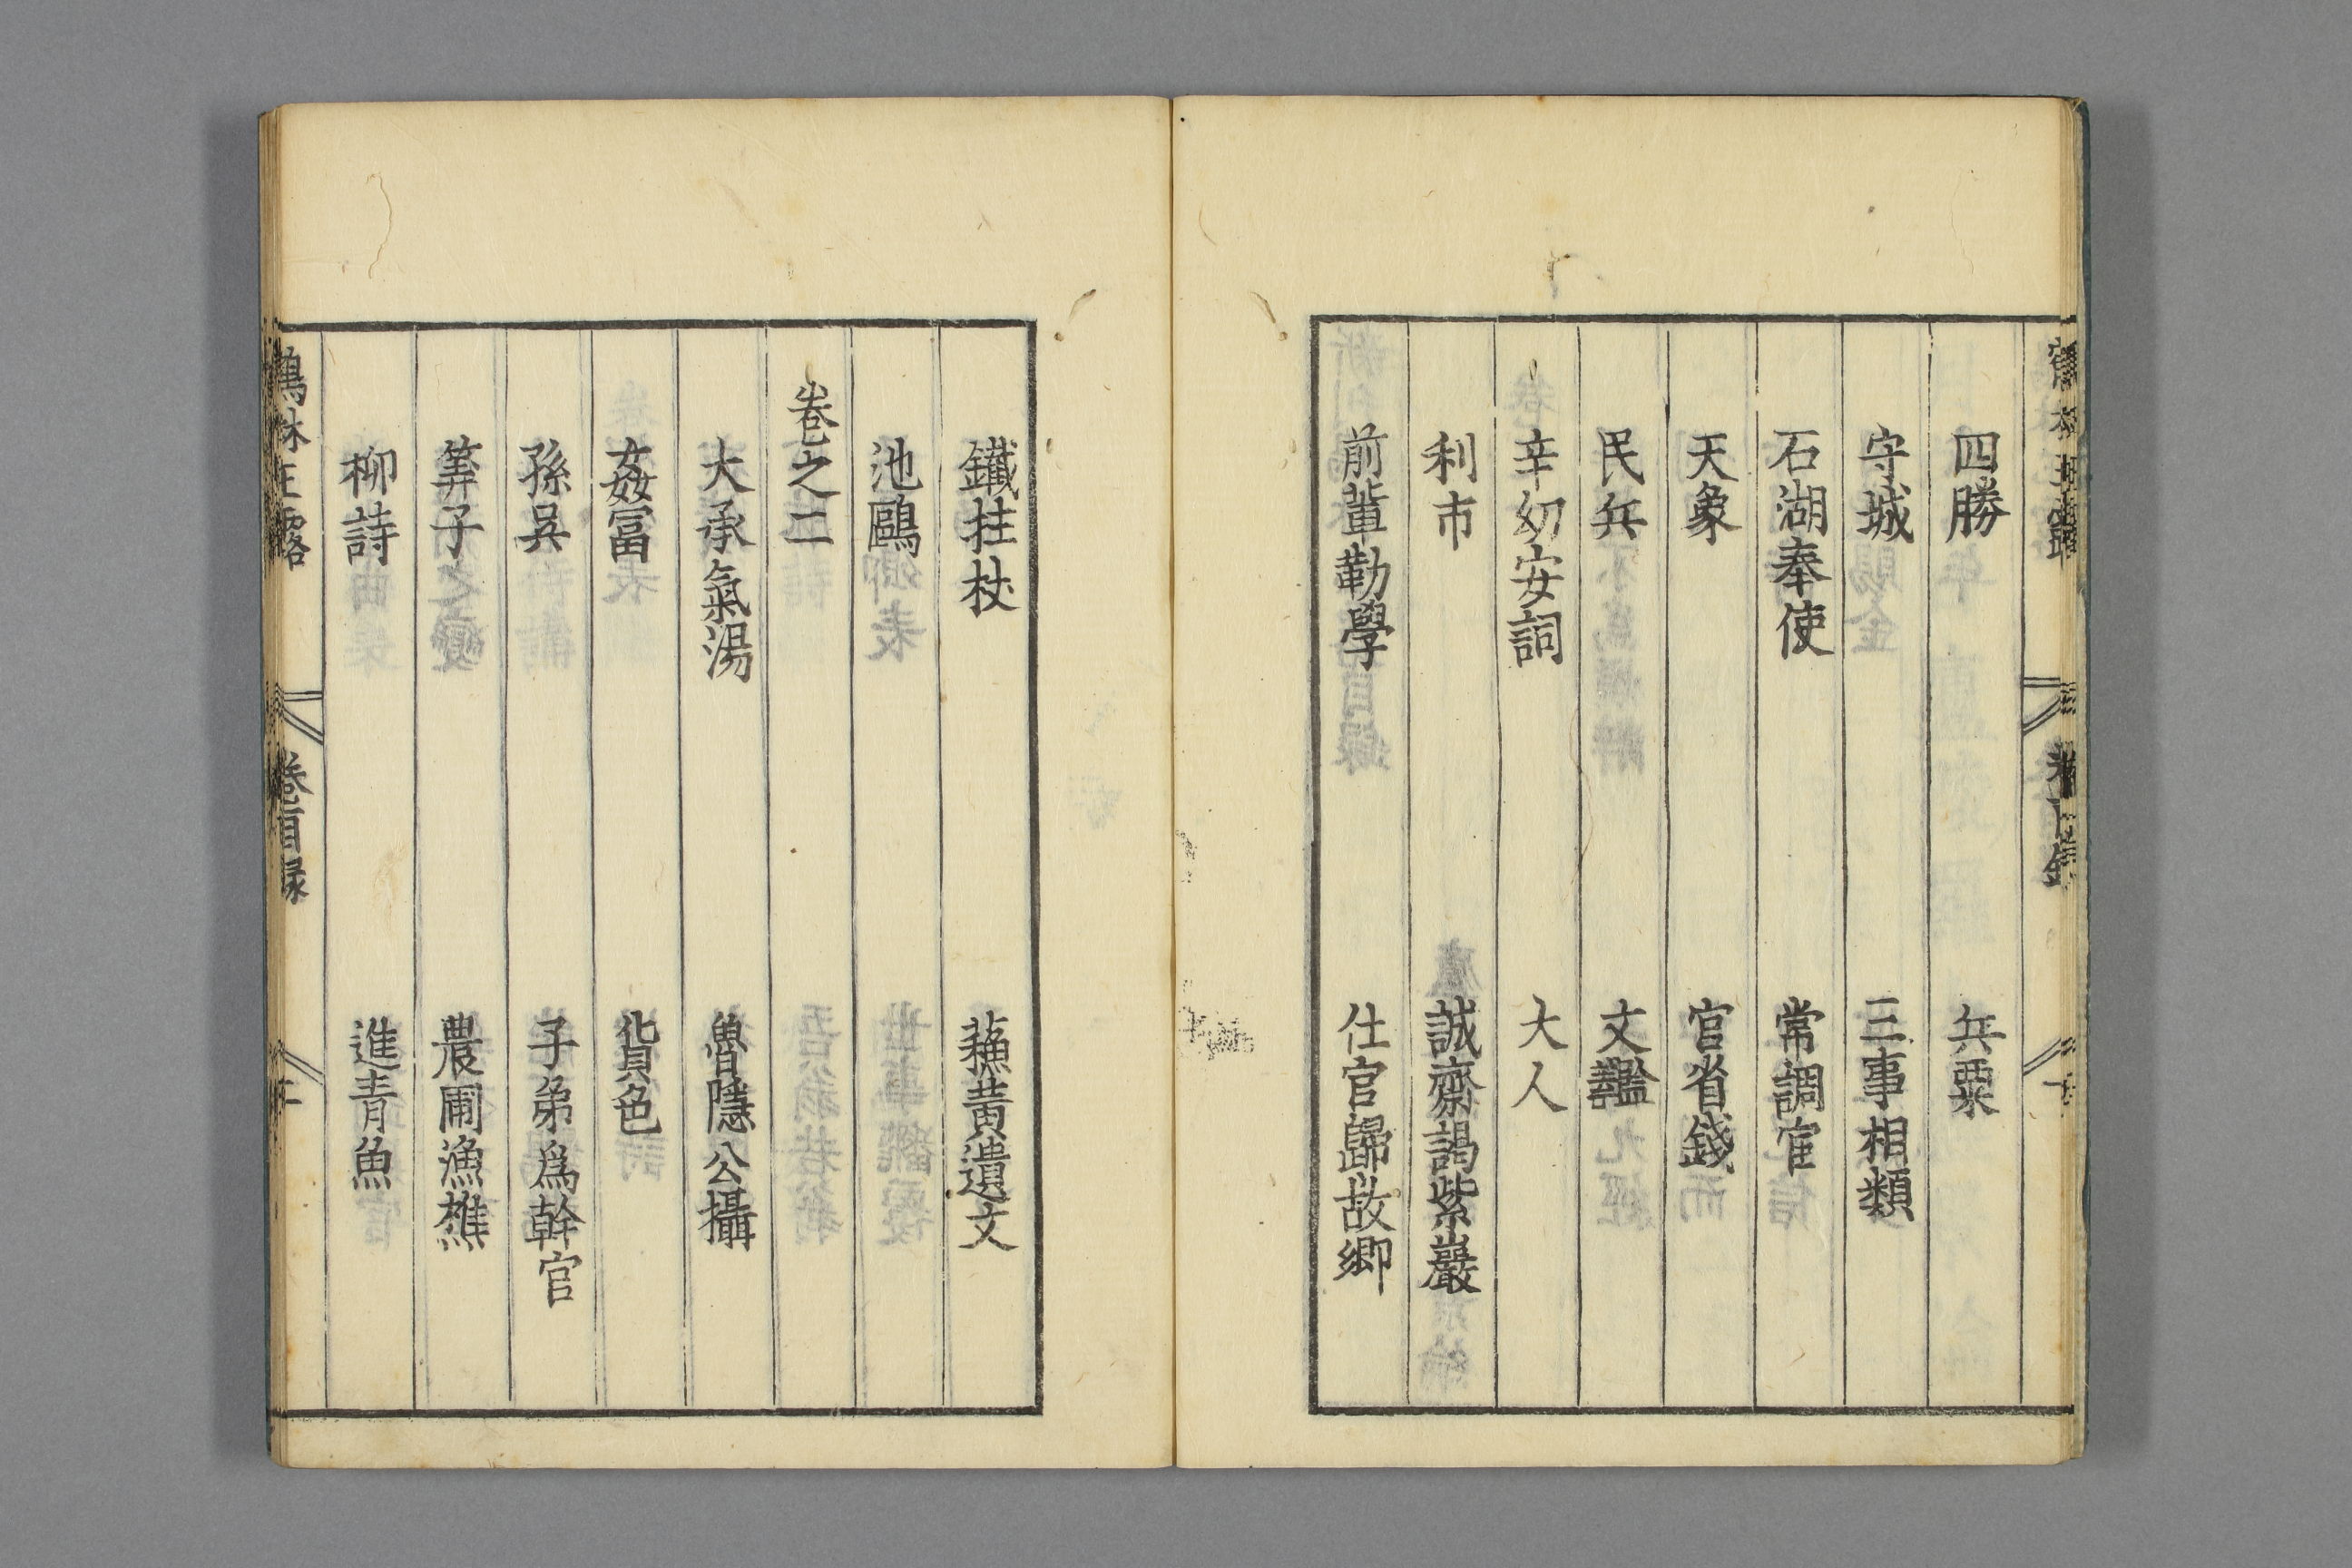 四勝　兵粟
守城　三事相類
石湖奉使　常調官
天象　官省錢
民兵　文鑑
辛幼安詞　大人
利市　誠齋謁紫巖
前輩勤學　仕官歸故鄉
鐵拄杖　蘓黄遺文
池鷗
卷之二
大承氣湯　魯隱公攝
姦冨　貨色
孫吳　子弟爲幹官
筭子　農圃漁樵
柳詩　進青魚
鶴林玉露　卷首目録　二